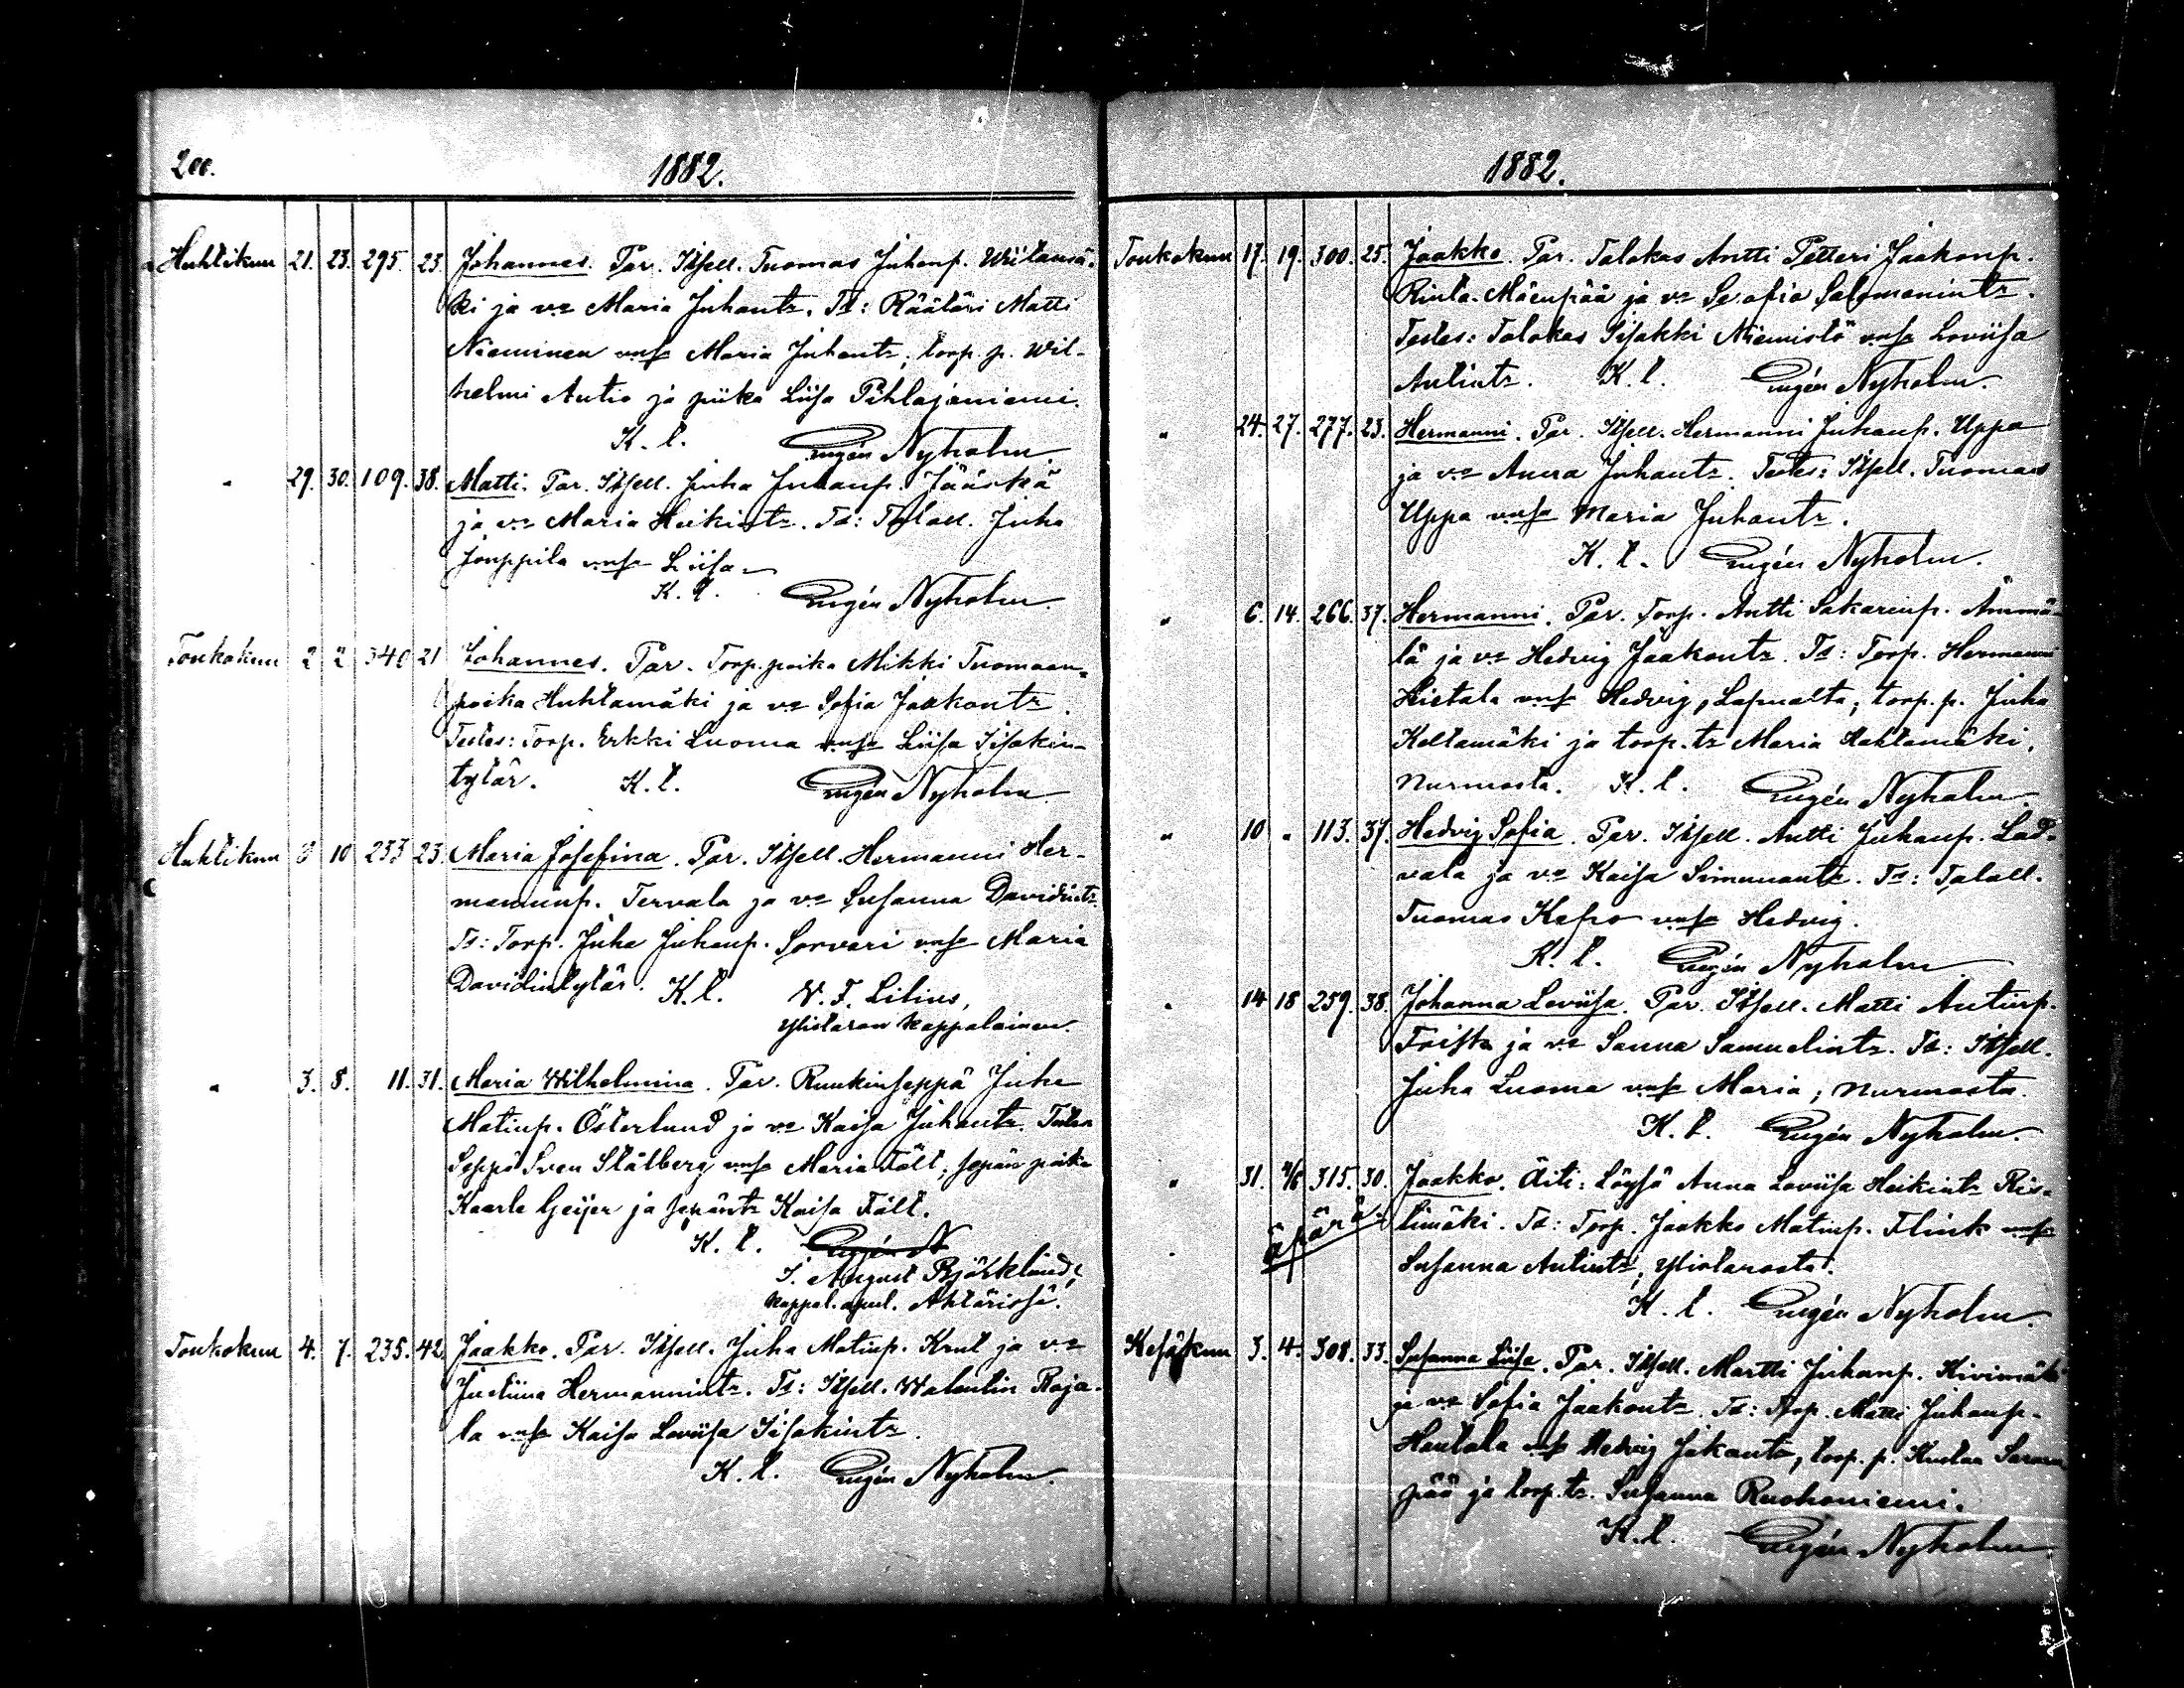 200.
1882.
Huhtikuu 21. 23. 295. 23. Johannes. Par. Itsell. Tuomas Juhanp. Wiitamä-
ki ja vo Maria Juhantr. Ts: Räätäri Matti
Nieminen vmsa Maria Juhantr; torp. p. Wil-
helmi Autio ja piika Liisa Pihlajaniemi.
K. l. Eugén Nyholm
" 29. 30. 109. 38. Matti. Par. Itsell. Juha Juhanp. Jääskä
ja vo Maria Heikintr. Ts: Talall. Juha
Jouppila vmsa Liisa
K. l. Eugén Nyholm.
Toukokuu 2 2 340 21 Johannes. Par. Torp. poika Mikki Tuomaan-
poika Huhtamäki ja vo Sofia Jaakontr.
Testes: Torp. Erkki Luoma vmsa Liisa Iisakin-
tytär. K. l. Eugén Nyholm
Huhtikuu 3 10 233 23. Maria Josefina. Par. Itsell. Hermanni Her-
manninp. Tervala ja vo Susanna Davidintr.
Ts: Torp. Juha Juhanp. Sorvari vmsa Maria
Davidintytär. K. l. V. F. Lilius,
Ylistaron kappalainen.
" 3. 8. 11. 31. Maria Wilhelmina. Par. Ruukinseppä Juha
Matinp. Österlund ja vo Kaisa Juhantr. Testes
Seppä Sven Stålberg vmsa Maria Fält; sepän poika
Kaarle Geijer ja sepäntr Kaisa Fält.
K. l. Eugén N
J. August Björklund,
kappal. apul. Ahtärissä.
Toukokuu 4. 7. 235. 42. Jaakko. Par. Itsell. Juha Matinp. Krut ja vo
Justiina Hermannintr. Ts: Itsell. Walentin Raja-
la vmsa Kaisa Loviisa Iisakintr.
K. l. Eugén Nyholm.
1882.
Toukokuu 17. 19. 300. 25. Jaakko. Par. Talokas Antti Petteri Jaakonp.
Rinta-Mäenpää ja vo Serafia Salomonintr.
Testes: Talokas Iisakki Niemistö vmsa Loviisa
Antintr. K. l. Eugén Nyholm.
" 24. 27. 277. 23. Hermanni. Par. Itsell. Hermanni Juhanp. Uppa
ja vo Anna Juhantr. Testes: Itsell. Tuomas
Uppa vmsa Maria Juhantr.
K. l. Eugén Nyholm.
" 6. 14. 266. 37. Hermanni. Par. Torp. Antti Sakarinp. Ämmä-
lä ja vo Hedvig Jaakontr. Ts: Torp. Hermanni
Hietala vmsa Hedvig, Lapualta; torp. p. Juha
Keltamäki ja torp. tr Maria Hahtamäki,
Nurmosta. K. l. Eugén Nyholm.
" 10 " 113. 37. Hedvig Sofia. Par. Itsell. Antti Juhanp. Lad-
vala ja vo Kaisa Simunantr. Ts: Talall.
Tuomas Kapso vmsa Hedvig.
K. l. Eugén Nyholm
" 14 18 259. 38. Johanna Loviisa. Par. Itsell. Matti Antinp.
Foista ja vo Sanna Samuelintr. Ts: Itsell.
Juha Luoma vmsa Maria; Nurmosta.
K. l. Eugén Nyholm.
" 31. 4/6 315. 30. Jaakko. Äiti: Löysä Anna Loviisa Heikintr Ris-
äpärä timäki. Ts: Torp. Jaakko Matinp. Flink vmsa
Susanna Antintr; Ylistarosta.
K. l. Eugén Nyholm.
Kesäkuu 3. 4. 308. 33. Susanna Liisa. Par. Itsell. Martti Juhanp. Kivimäki
ja vo Sofia Jaakontr. Ts: Torp. Matti Juhanp.
Hautala vmsa Hedvig Jaakontr, torp. p. Kustaa Saran
pää ja torp. tr. Susanna Ruohoniemi.
K. l. Eugén Nyholm